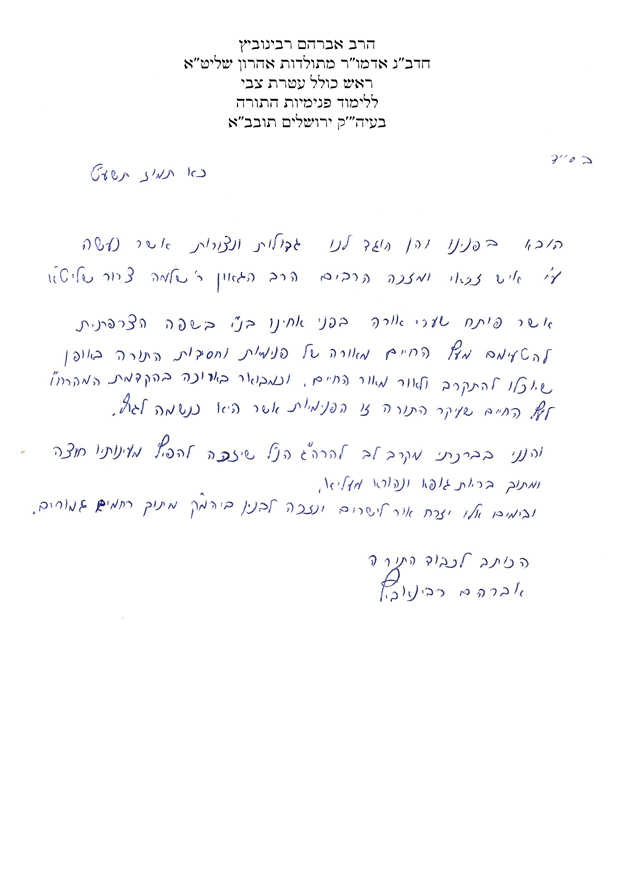 הרב אברהם רבינוביץ
חדב"נ אדמו"ר מתולדות אהרון שליט"א
ראש כולל עטרת צבי
ללימוד פנימיות התורה
בעיה"ק ירושלים תובב"א
בס"ד
כא תמוז תשע"ט
הובא בפנינו והן הוגד לנו גדולות ונצורות אשר נעשה
ע"י איש זכאי ומזכה הרבים הרב הגאון ר' שלמה צרור שליט"א
אשר פותח שערי אורה בפני אחינו בנ"י בשפה הצרפתית
להטעימם מעץ החיים מאורה של פנימיות וחסידות התורה באופן
שיוכלו להתקרב ולאור מאור החיים, וכמבואר בארוכה בהקדמת המהרח"ו
לעץ החיים שעיקר התורה זו הפנימיות אשר היא כנשמה לגוף.
והנני בברכתי מקרב לב להרה"ג הנ"ל שיזכה להפיץ מעינותיו חוצה
ומתוך בריות גופא ונהורא מעליא,
ובימים אלו יזרח אור לישרים ונזכה לבנין ביהמ"ק מתוך רחמים גמורים.
הכותב לכבוד התורה
אברהם רבינוביץ